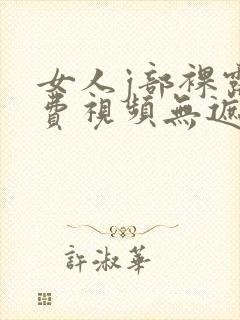 女人j部裸露
費視頻無遮
許淑華